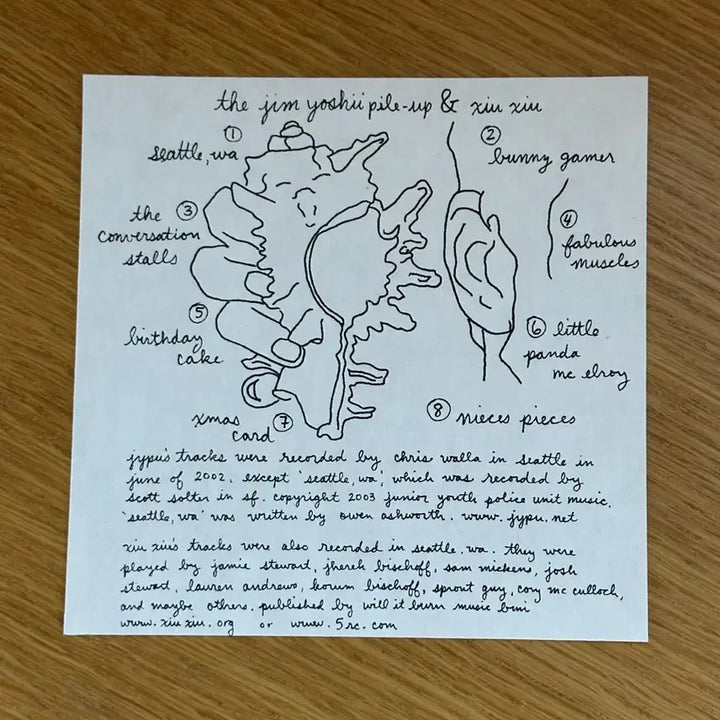 the jim yoshii pile-up & xiu xiu
① seattle, wa
② bunny gamer
③ the conversation stalls
④ fabulous muscles
⑤ birthday cake
⑥ little panda mc elroy
⑦ xmas card
⑧ nieces pieces
jypu's tracks were recorded by chris walla in seattle in
june of 2002. except 'seattle, wa', which was recorded by
scott solter in sf. copyright 2003 junior youth police unit music.
'seattle, wa' was written by owen ashworth. www.jypu.net
xiu xiu's tracks were also recorded in seattle, wa. they were
played by jamie stewart, jhereh bischoff, sam mickens, josh
stewart, lauren andrews, korum bischoff, sprout guy, cory mc culloch,
and maybe others. published by will it burn music bmi
www.xiuxiu.org or www.5rc.com